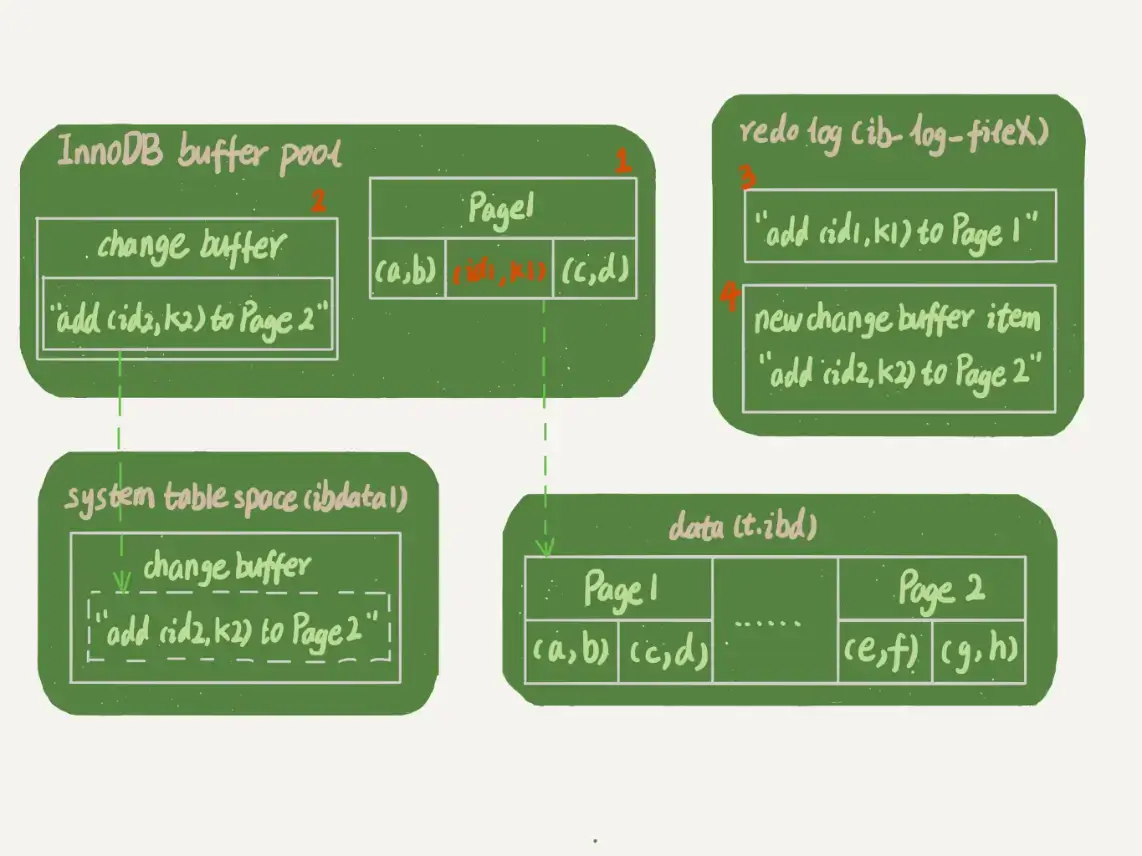 InnoDB buffer pool
2
change buffer
"add (id2,k2) to Page 2"
1
Page1
(a,b) (id1,k1) (c,d)
redo log (ib_log_fileX)
3
"add (id1,k1) to Page 1"
4
new change buffer item
"add (id2,k2) to Page 2"
system table space (ibdata1)
change buffer
"add (id2,k2) to Page2"
data (t.ibd)
Page1 ...... Page 2
(a,b) (c,d) (e,f) (g,h)